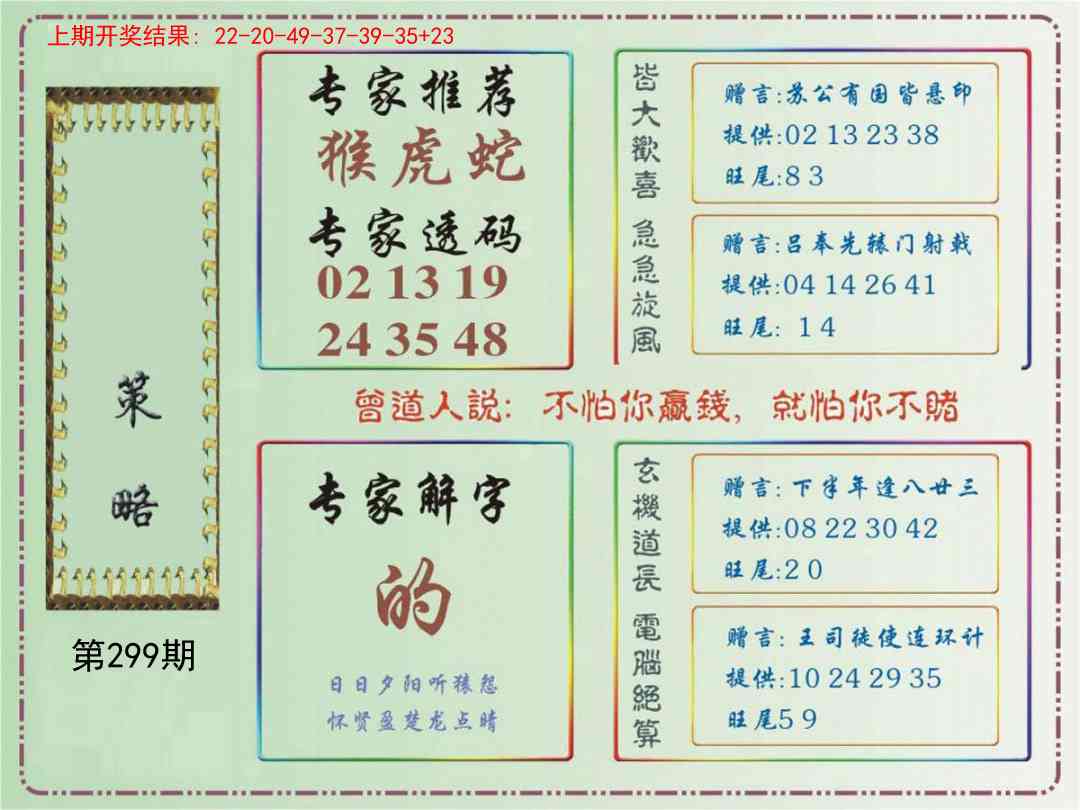 上期开奖结果: 22-20-49-37-39-35+23
策略
第299期
专家推荐
猴虎蛇
专家透码
02 13 19
24 35 48
皆大歡喜
赠言:苏公有国皆悬印
提供:02 13 23 38
旺尾:8 3
急急旋風
赠言:吕奉先辕门射戟
提供:04 14 26 41
旺尾: 1 4
曾道人説: 不怕你贏錢, 就怕你不賭
专家解字
的
日日夕阳听猿怨
怀贤盈楚龙点晴
玄機道長
赠言: 下半年逢八廿三
提供:08 22 30 42
旺尾:2 0
電腦絕算
赠言: 王司徒使连环计
提供:10 24 29 35
旺尾5 9